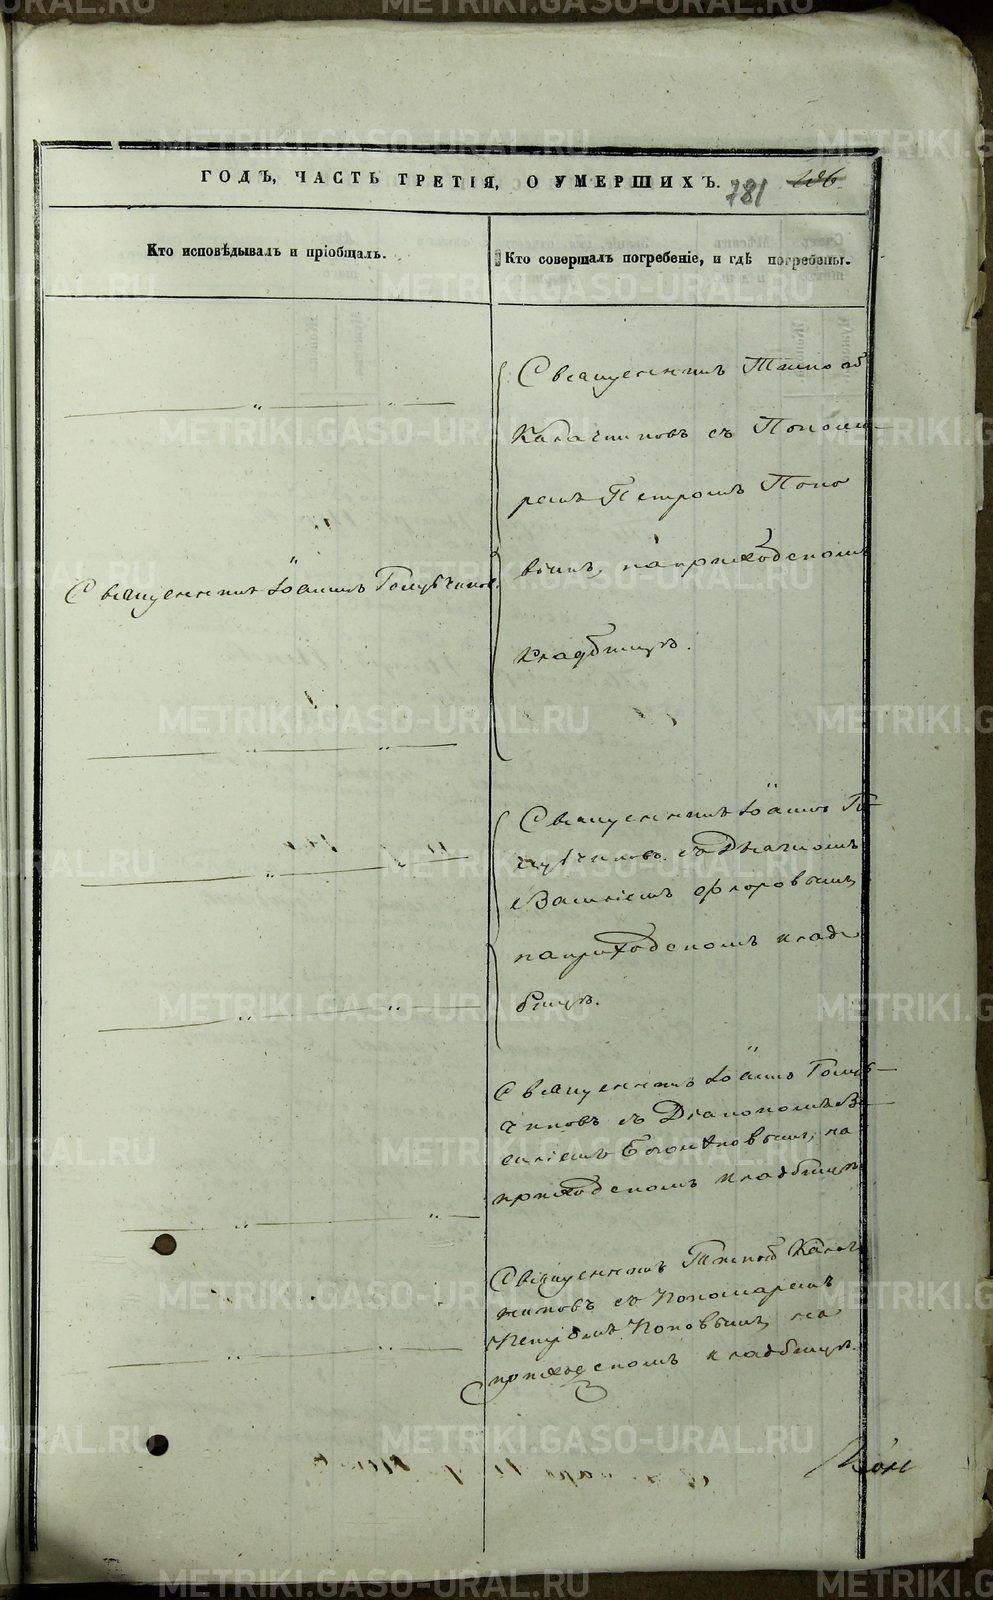 ГОДЪ, ЧАСТЬ ТРЕТІЯ, О УМЕРШИХЪ.
781
186
Кто исповѣдывалъ и пріобщалъ.
Кто совершалъ погребеніе, и гдѣ погребены.
Священникъ Іоаннъ Голубчиков
Священникъ Тимоѳ
Калачниковъ съ Понома-
ремъ Петромъ Попо
вымъ, на приходскомъ
кладбищѣ.
Священникъ Іоаннъ Го-
лубчиковъ съ Дьячкомъ
Василіемъ Флоровымъ,
на приходскомъ клад-
бищѣ.
Священникъ Іоаннъ Голуб-
чиковъ съ Діакономъ Ва-
силіемъ на
приходскомъ кладбищѣ
Священникъ Тимоѳ Калач
никовъ съ Пономаремъ
Петромъ Поповымъ, на
приходскомъ кладбищѣ.
METRIKI.GASO-URAL.RU